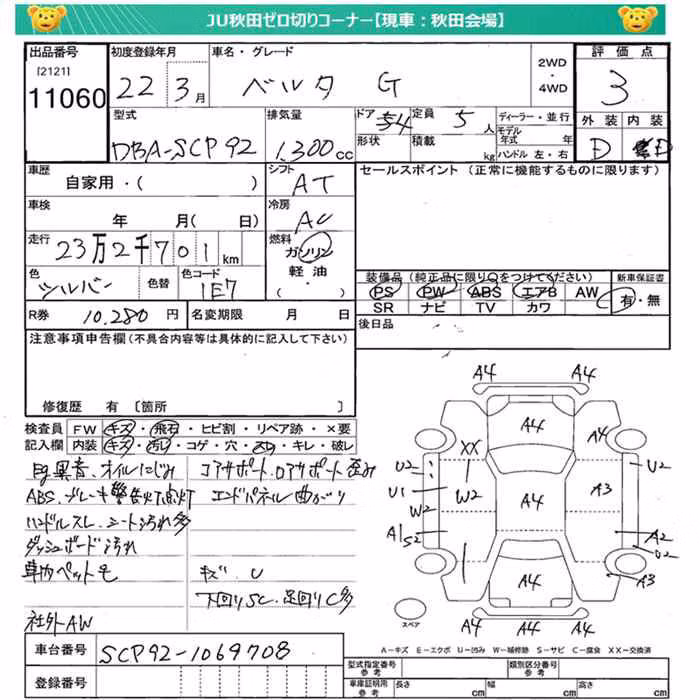 JU秋田ゼロ切りコーナー【現車：秋田会場】
出品番号 初度登録年月 車名・グレード 評価点
[2121]
11060 22 3月 ベルタ G 2WD・4WD 3
型式 排気量 ドア 54 定員 5人 ディーラー・並行 外装 内装
形状 積載 kg モデル年式 年
DBA-SCP92 1,300cc ハンドル 左・右 D D
車歴 シフト セールスポイント (正常に機能するものに限ります)
自家用・( ) AT
車検 冷房
年 月( 日) AC
走行 燃料
23万2千701km ガソリン
軽油・( )
色 色替 色コード
シルバー 1E7
装備品(純正品に限り○をつけてください) 新車保証書
PS PW ABS エアB AW 有・無
SR ナビ TV カワ
R券 10,280円 名変期限 月 日
後日品
注意事項申告欄(不具合内容等は具体的に記入して下さい)
修復歴 有 [箇所 ]
検査員 FW キズ・飛石・ヒビ割・リペア跡・×要
記入欄 内装 キズ・汚れ・コゲ・穴・スレ・キレ・破レ
異音、オイルにじみ コアサポート、ロアサポート歪み
ABS、ブレーキ警告灯点灯 エンドパネル曲がり
ハンドルスレ、シート汚れ多
ダッシュボード汚れ
車内ペット毛 キズ、U
下回りSC、足回りC多
社外AW
A4 A4
A4
A4
XX
U2 U2
U1 W2 A4 A3
W2
A1 S2 A2
U2
A4 A3
A4 A4 A4
スペア
A－キズ E－エクボ U－凹み W－補修跡 S－サビ C－腐食 XX－交換済
車台番号 SCP92-1069708
登録番号
型式指定番号 参考 類別区分番号 参考
車庫証明用 参考 長さ cm 幅 cm 高さ cm